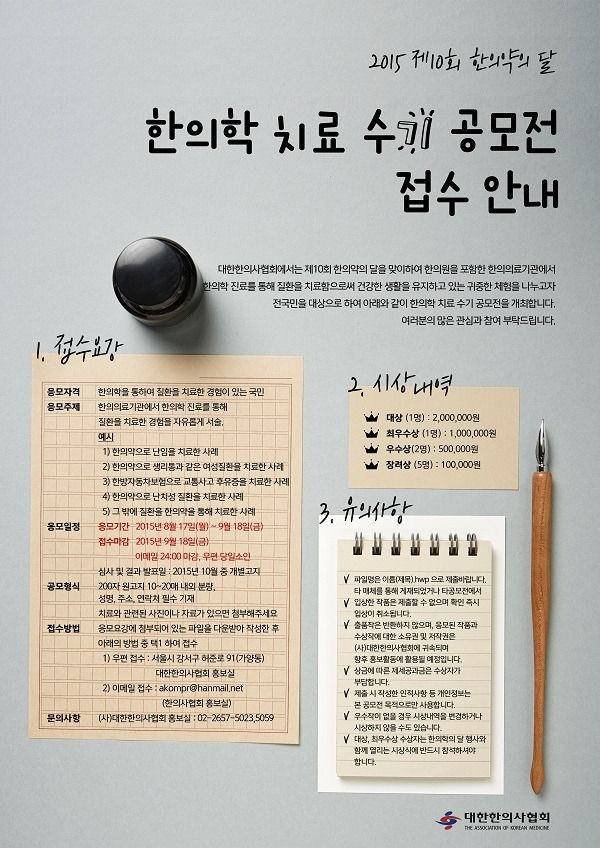 2015 제10회 한의약의 달
한의학 치료 수기 공모전
접수 안내
대한한의사협회에서는 제10회 한의약의 달을 맞이하여 한의원을 포함한 한의의료기관에서
한의학 진료를 통해 질환을 치료함으로써 건강한 생활을 유지하고 있는 귀중한 체험을 나누고자
전국민을 대상으로 하여 아래와 같이 한의학 치료 수기 공모전을 개최합니다.
여러분의 많은 관심과 참여 부탁드립니다.
1. 접수요강
응모자격 한의학을 통하여 질환을 치료한 경험이 있는 국민
응모주제 한의의료기관에서 한의학 진료를 통해
질환을 치료한 경험을 자유롭게 서술.
예시
1) 한의약으로 난임을 치료한 사례
2) 한의약으로 생리통과 같은 여성질환을 치료한 사례
3) 한방자동차보험으로 교통사고 후유증을 치료한 사례
4) 한의약으로 난치성 질환을 치료한 사례
5) 그 밖에 질환을 한의약을 통해 치료한 사례
응모일정 응모기간 2015년 8월 17일(월) ~ 9월 18일(금)
접수마감 2015년 9월 18일(금)
이메일 24:00 마감, 우편 당일소인
심사 및 결과 발표일 : 2015년 10월 중 개별고지
공모형식 200자 원고지 10~20매 내외 분량,
성명, 주소, 연락처 필수 기재
치료와 관련된 사진이나 자료가 있으면 첨부해주세요
접수방법 응모요강에 첨부되어 있는 파일을 다운받아 작성한 후
아래의 방법 중 택1 하여 접수
1) 우편 접수 : 서울시 강서구 허준로 91(가양동)
대한한의사협회 홍보실
2) 이메일 접수 : akompr@hanmail.net
(한의사협회 홍보실)
문의사항 (사)대한한의사협회 홍보실 : 02-2657-5023,5059
2. 시상내역
대상 (1명) : 2,000,000원
최우수상 (1명) : 1,000,000원
우수상(2명) : 500,000원
장려상 (5명) : 100,000원
3. 유의사항
파일명은 이름(제목).hwp 으로 제출바랍니다.
타 매체를 통해 게재되었거나 타공모전에서
입상한 작품은 제출할 수 없으며 확인 즉시
입상이 취소됩니다.
출품작은 반환하지 않으며, 응모된 작품과
수상작에 대한 소유권 및 저작권은
(사)대한한의사협회에 귀속되며
향후 홍보활동에 활용될 예정입니다.
상금에 따른 제세공과금은 수상자가
부담합니다.
제출 시 작성한 인적사항 등 개인정보는
본 공모전 목적으로만 사용합니다.
우수작이 없을 경우 시상내역을 변경하거나
시상하지 않을 수도 있습니다.
대상, 최우수상 수상자는 한의학의 달 행사와
함께 열리는 시상식에 반드시 참석하셔야
합니다.
대한한의사협회
THE ASSOCIATION OF KOREAN MEDICINE